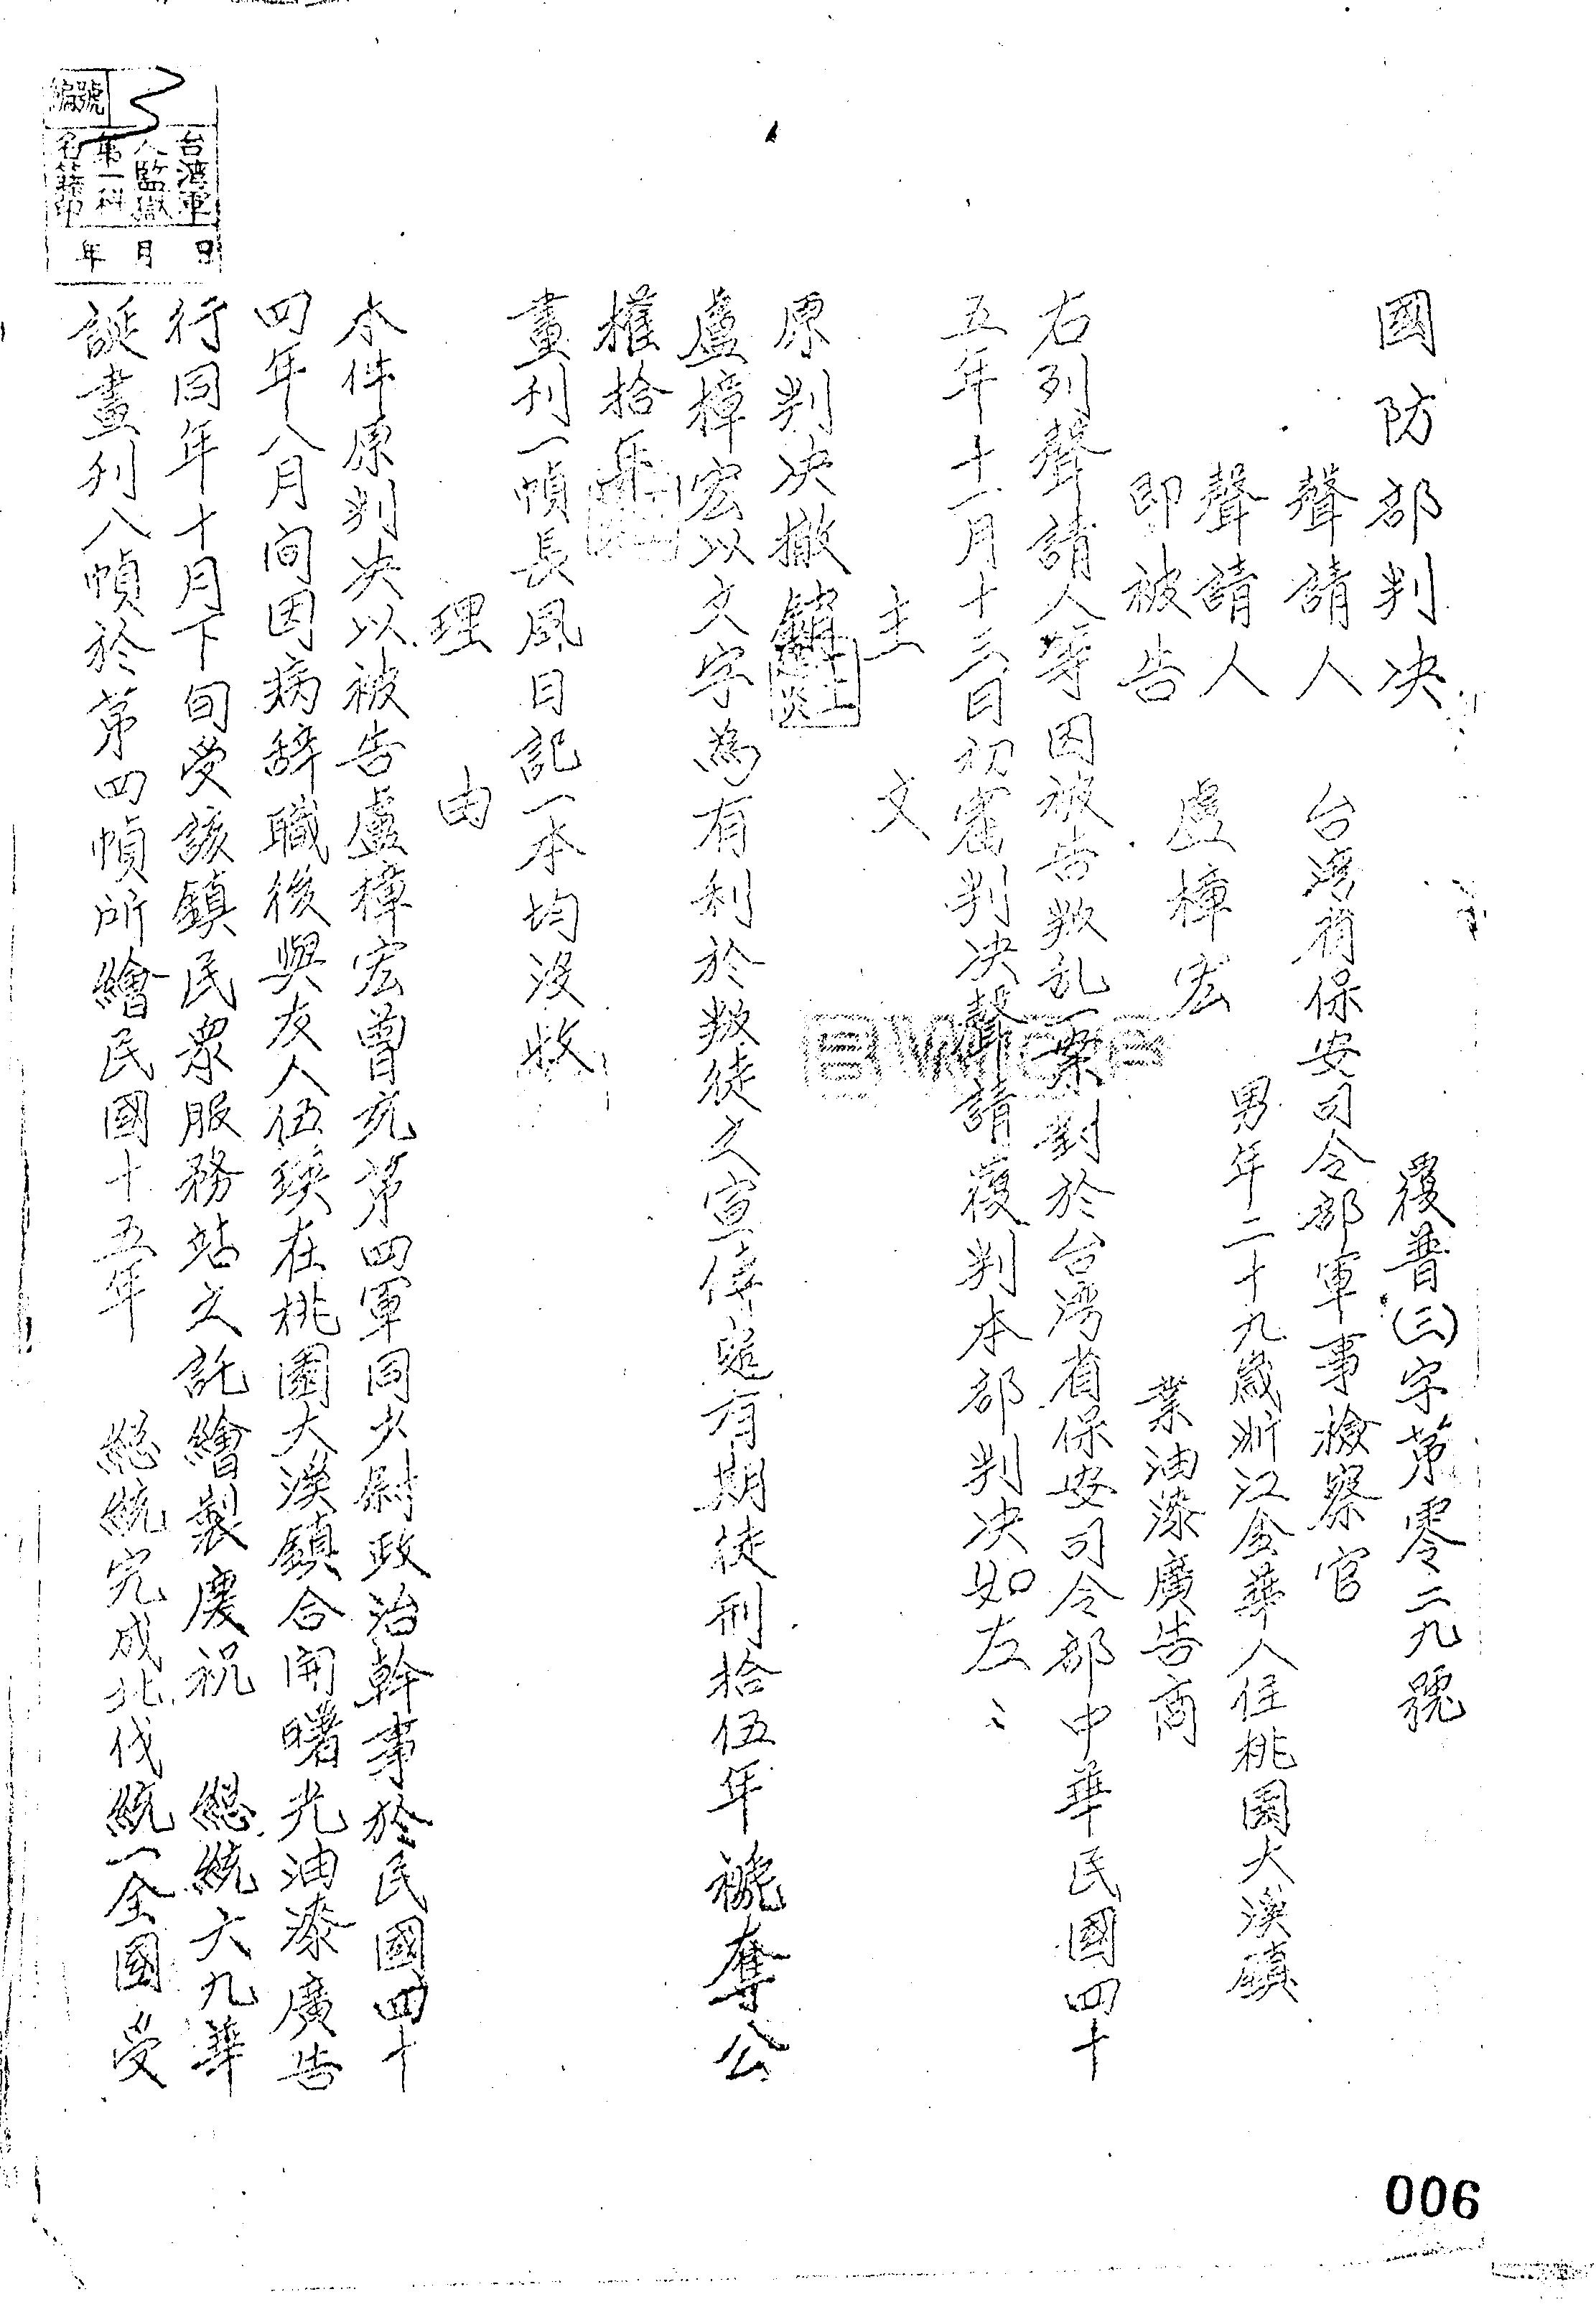 國防部判決
覆普(三)字第零二九號
聲請人 台湾省保安司令部軍事檢察官
聲請人
即被告 盧樟宏 男年二十九歲浙江金華人住桃園大溪鎮
業油漆廣告商
右列聲請人等因被告叛乱一案對於台湾省保安司令部中華民國四十
五年十一月十三日初審判決聲請覆判本部判決如左：
主 文
原判決撤銷
盧樟宏以文字為有利於叛徒之宣傳處有期徒刑拾伍年褫奪公
權拾年
畫刊一幀長風日記一本均沒收
理 由
本件原判決以被告盧樟宏曾充第四軍同少尉政治幹事於民國四十
四年八月間因病辞職後與友人伍鍈在桃園大溪鎮合開曙光油漆廣告
行同年十月下旬受該鎮民眾服務站之託繪製慶祝 總統六九華
誕畫刊八幀於第四幀所繪民國十五年 總統完成北伐統一全國受
編號 3
台湾軍
人監獄
第一科
名籍印
年 月 日
006